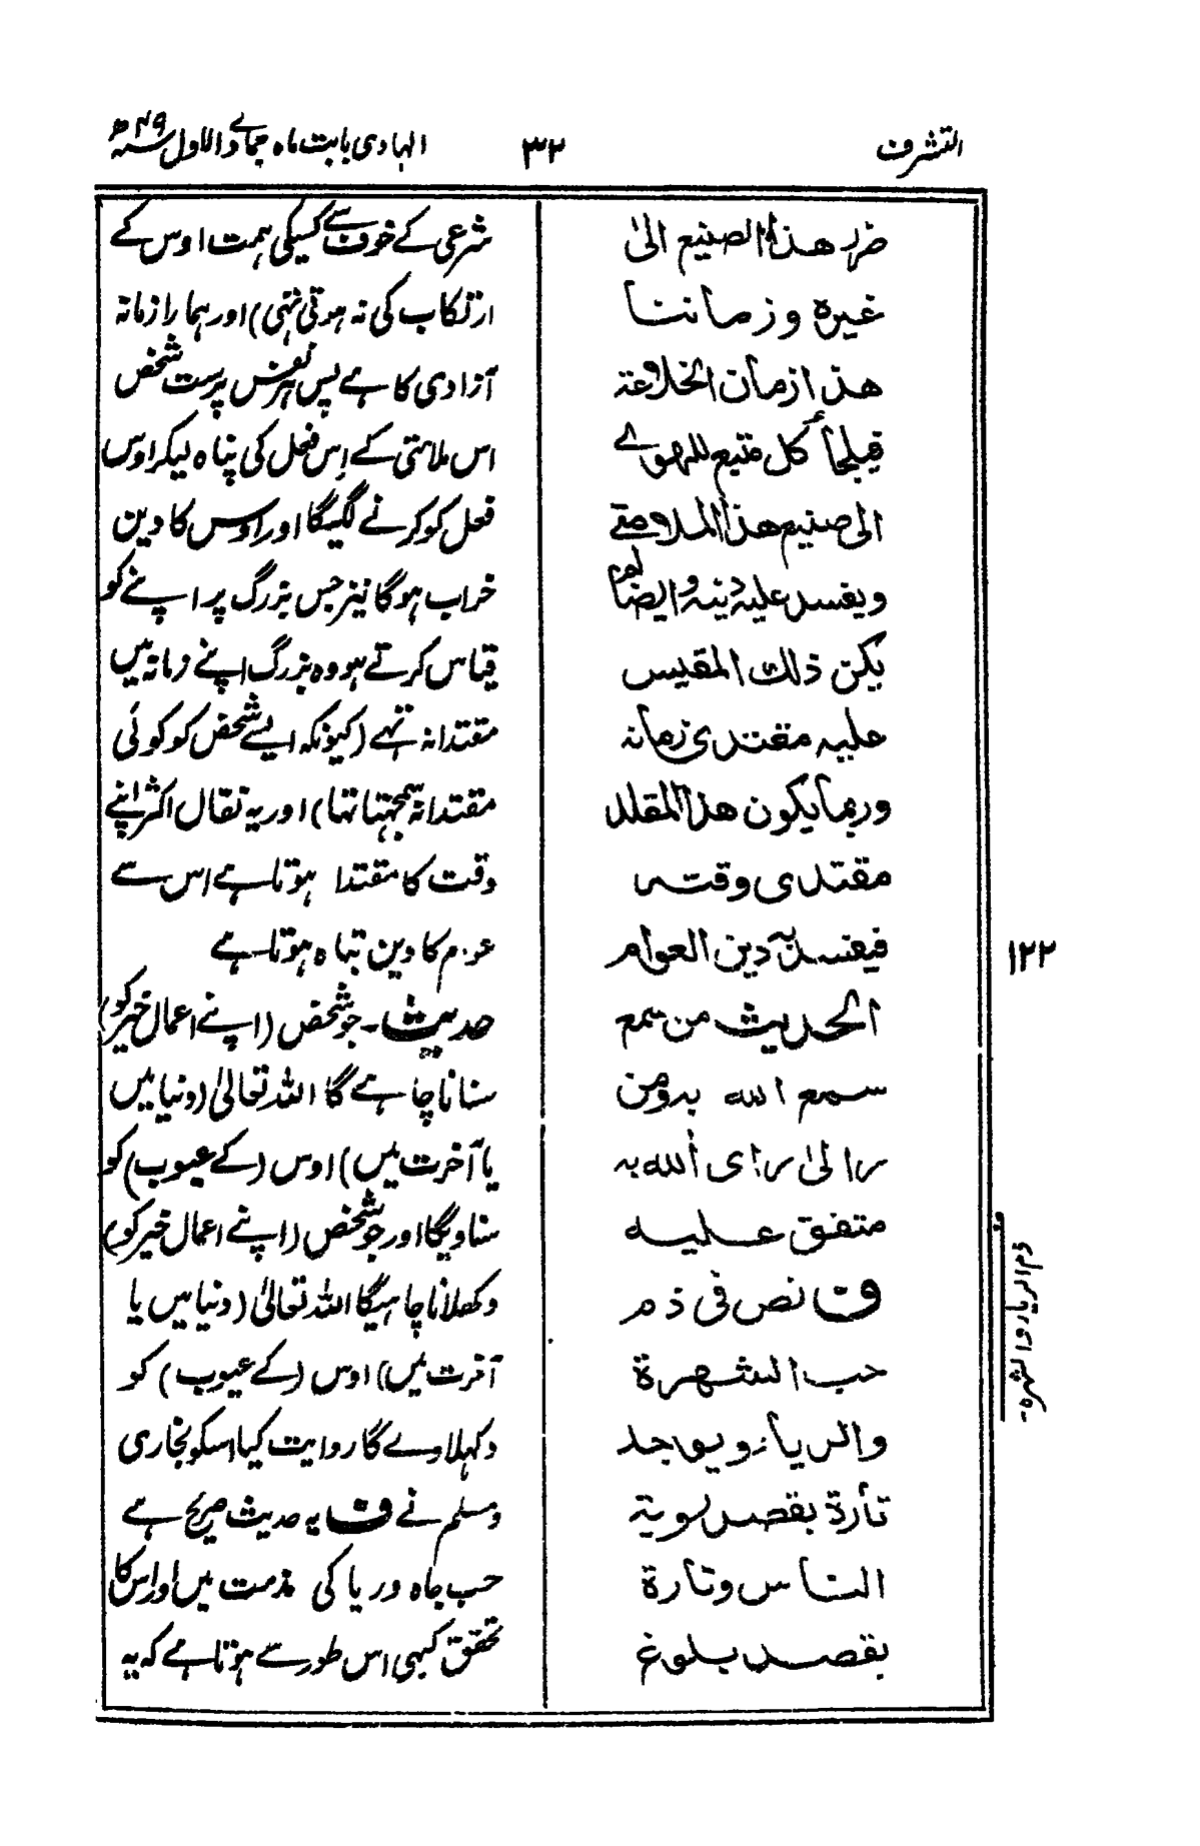 التشرف
۳۲
الہادی بابت ماہ جمادے الاول سنہ ۴۹ھ
ضرر هذا الصنيع الیٰ
غيره وزماننا
هذا زمان الخلاعة
فيلجأ كل متبع للهوے
الى صنيع هذا الملامتے
ويفسد عليه دينه وايضا لم
يكن ذلك المقيس
عليه مقتدى زمانه
وربما يكون هذا المقلد
مقتدى وقته
فيفسد به دين العوام
الحديث من سمع
سمع الله به ومن
را ئیٰ راءى الله به
متفق عليه
ف نص فى ذم
حب الشهرة
والرياء ويوجد
تارة بقصد لروية
الناس وتارة
بقصد بلوغ
شرعی کے خوف سے کسیکی ہمت اوس کے
ارتکاب کی نہ ہوتی تہی) اور ہمارا زمانہ
آزادی کا ہے پس ہر نفس پرست شخص
اس ملامتی کے اِس فعل کی پناہ لیکر اوس
فعل کو کرنے لگیگا اور اوس کا دین
خراب ہوگا نیز جس بزرگ پر اپنے کو
قیاس کرتے ہو وہ بزرگ اپنے زمانہ میں
مقتدا نہ تہے (کیونکہ ایسے شخص کو کوئی
مقتدا نہ سمجہتا تہا) اور یہ نقال اکثر اپنے
وقت کا مقتدا ہوتا ہے اس سے
عوام کا دین تباہ ہوتا ہے
حدیث۔ جو شخص (اپنے اعمال خیر کو)
سنانا چاہے گا اللہ تعالیٰ (دنیا میں
یا آخرت میں) اوس (کے عیوب) کو
سناویگا اور جو شخص (اپنے اعمال خیر کو)
دکھلانا چاہیگا اللہ تعالیٰ (دنیا میں یا
آخرت میں) اوس (کے عیوب) کو
دکہلاوے گا روایت کیا اسکو بخاری
ومسلم نے ف یہ حدیث صریح ہے
حب جاہ وریا کی مذمت میں اور اس کا
تحقق کبہی اس طور سے ہوتا ہے کہ یہ
۱۲۲
ذم الریاء والشہرہ۔